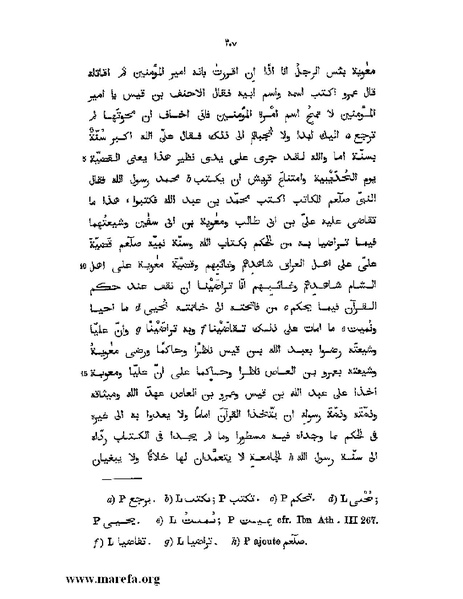 ٢٠٧
معوية بئس الرجلُ انا اذًا إن اقررت بانه امير المؤمنين ثم اقاتله
قال عمرو اكتب اسمه واسم ابيه فقال الاحنف بن قيس يا امير
المؤمنين لا تمحُ اسم امْرة المؤمنين فانى اخاف ان محوتَها لم
ترجع a اليك ابدا ولا تجبهم الى ذلك فقال علىّ الله اكبر سُنّةٌ
بسنّة اما والله لقد جرى على يدى نظير هذا يعنى القضيّة
يوم الحُدَيْبِية وامتناع قريش ان يكتب b محمد رسول الله فقال
النبى صلعم للكاتب اكتب محمّد بن عبد الله فكتبوا، هذا ما
تقاضى عليه علىّ بن ابى طالب ومعوية بن ابى سفين وشيعتُهما
فيما تراضيا به من الحكم بكتاب الله وسنّة نبيّه صلعم قضيّة
علىّ على اهل العراق شاهدِهم وغائبِهم وقضيّة معوية على اهل 10
الشام شاهدهم وغائبهم انّا تراضَيْنا ان نقف عند حكم
القرآن فيما يحكم c من فاتحته الى خاتمته نُحيى d ما احيا
ونُميت e ما امات على ذلك تقاضَيْنا f وبه تراضَيْنا g وانّ عليّا
وشيعتَه رضوا بعبد الله بن قيس ناظرًا وحاكما ورضى معوية
وشيعته بعمرو بن العاص ناظرا وحاكما على انّ عليّا ومعوية 15
أخذا على عبد الله بن قيس وعمرو بن العاص عهدَ الله وميثاقَه
وذمّتَه وذمّة رسوله ان يتّخذا القرآن امامًا ولا يعدوا به الى غيره
فى الحكم بما وجداه فيه مسطورا وما لم يجدا فى الكتاب ردّاه
الى سنّة رسول الله h الجامعة لا يتعمّدان لها خلافًا ولا يبغيان
a) P يرجع. b) L مكتب; P تكتب. c) P تحكم. d) L نُحْيى;
P يحيى. e) L نُمِيت; P يميت cfr. Ibn Ath. III 267.
f) L تقاضيا. g) L تراضيا. h) P ajoute صلعم.
www.marefa.org